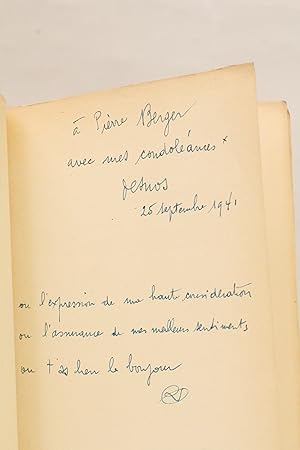 à Pierre Berger
avec mes condoléances x
Desnos
25 septembre 1941
ou l'expression de ma haut considération
ou l'assurance de mes meilleurs sentiments
ou t'as bien le bonjour